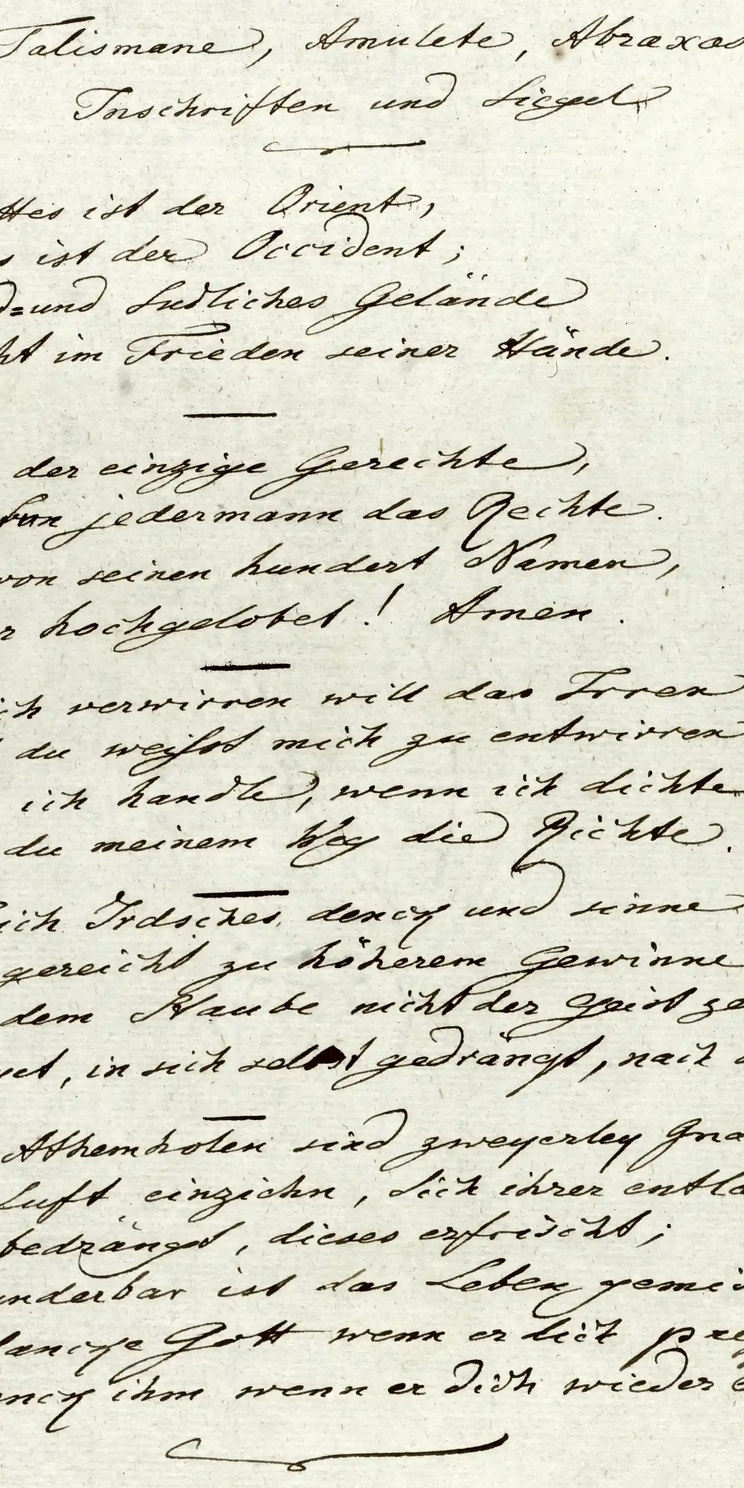 Talismane, Amulete, Abraxas
Inschriften und Siegel
ttes ist der Orient,
s ist der Occident;
d=und südliches Gelände
ht im Frieden seiner Hände.
der einzige Gerechte,
jedermann das Rechte.
von seinen hundert Namen,
r hochgelobet! Amen.
ich verwirren will das Irren
du weisst mich zu entwirren
ich handle, wenn ich dichte
du meinem Weg die Richte.
ich Irdsches denck und sinne
gereicht zu höherem Gewinne
dem Staube nicht der Geist ze
et, in sich selbst gedrängt, nach
Athemholen sind zweyerley Gna
Luft einziehn, sich ihrer entla
bedrängt, dieses erfrischt;
underbar ist das Leben gemi
dancke Gott wenn er dich pre
nck ihm wenn er dich wieder e